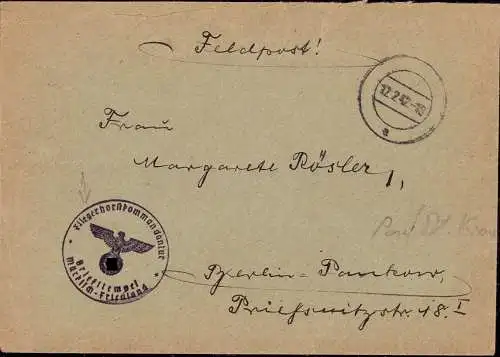 Feldpost!
12.2.42
a
Frau
Margarete Rösler,
Fliegerhorstkommandantur
Briefstempel
Märkisch-Friedland
Berlin-Pankow,
Prießnitzstr. 18. I